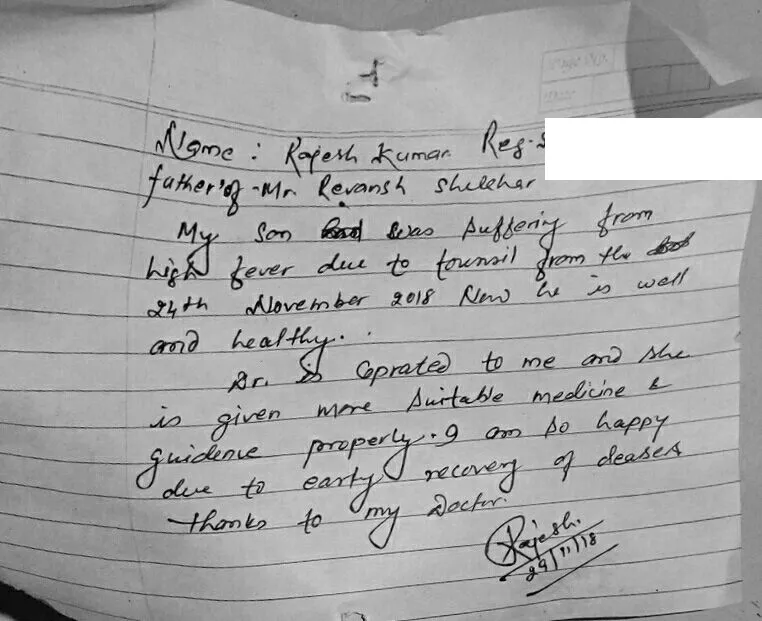 Name: Rajesh Kumar Reg.
father's of - Mr. Revansh Shekhar
My Son was suffering from
high fever due to tounsil from the
24th November 2018 Now he is well
and healthy.
Dr. is Coprated to me and she
is given more Suitable medicine &
guidence properly. I am so happy
due to early recovery of deases
thanks to my Doctor.
Rajesh.
29/11/18